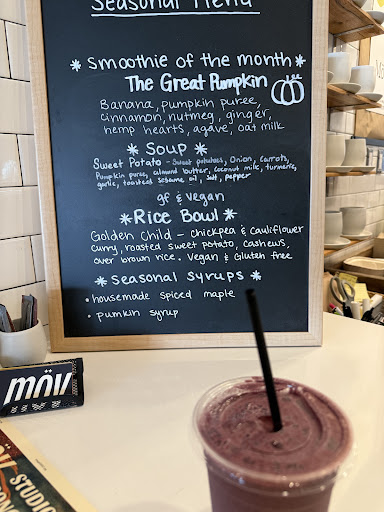 Seasonal Menu
* Smoothie of the month *
The Great Pumpkin
Banana, pumpkin puree,
cinnamon, nutmeg, ginger,
hemp hearts, agave, oat milk
* Soup *
Sweet Potato - Sweet potatoes, Onion, carrots,
Pumpkin puree, almond butter, coconut milk, turmeric,
garlic, toasted sesame oil, salt, pepper
gf & vegan
* Rice Bowl *
Golden Child - chickpea & cauliflower
curry, roasted sweet potato, cashews,
over brown rice. Vegan & Gluten free
* Seasonal Syrups *
• housemade spiced maple
• pumkin syrup
MÖV
STUDIO